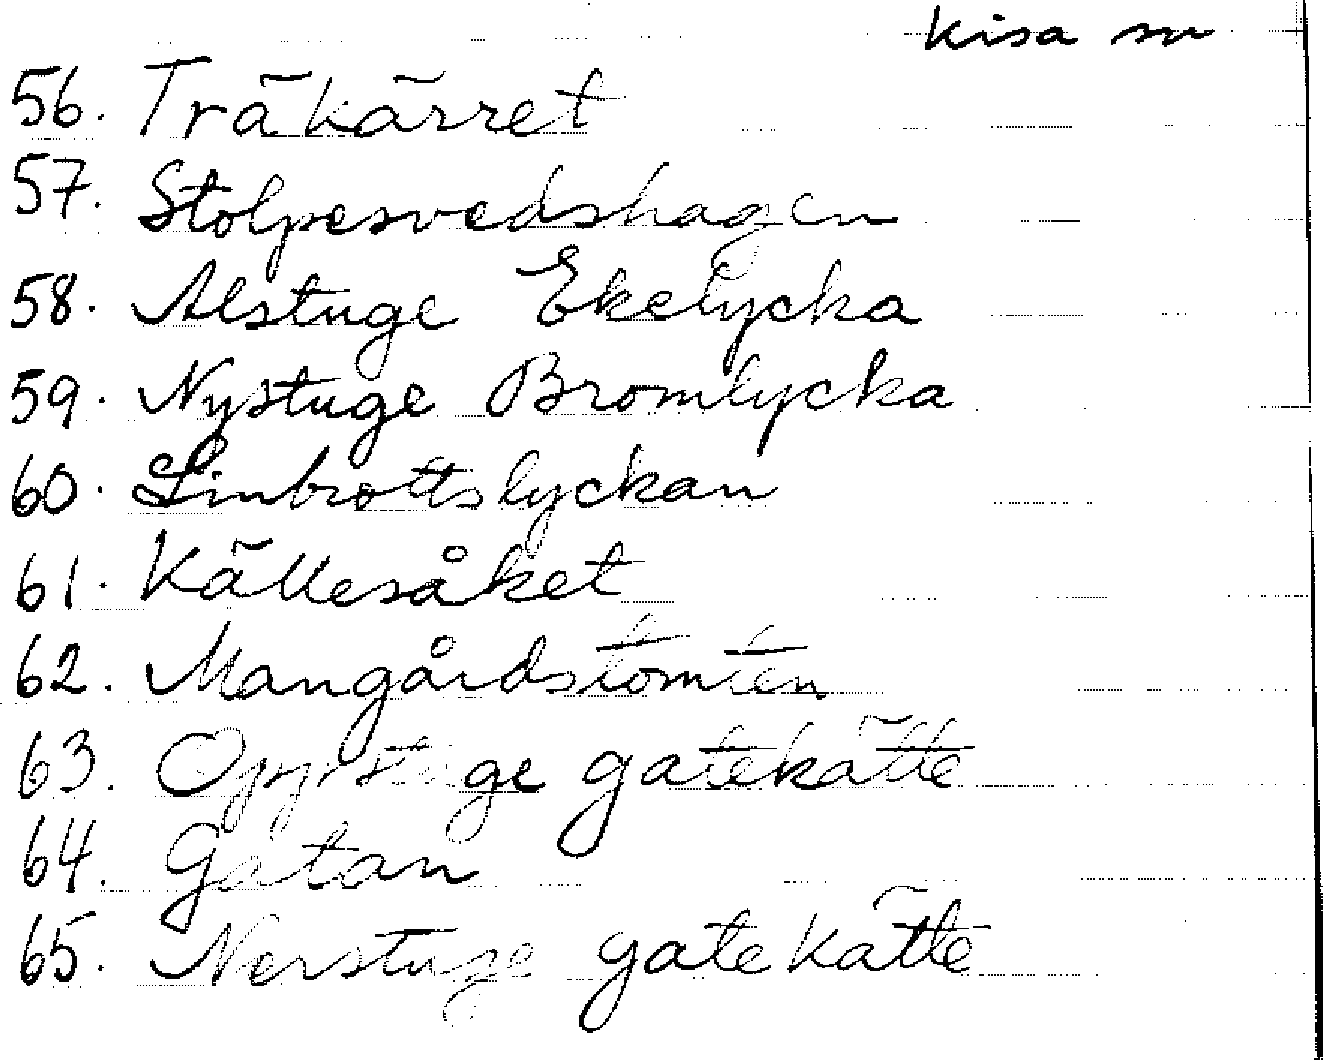 Kisa sn
56. Träkärret
57. Stolpesvedshagen
58. Alstuge Ekelycka
59. Nystuge Bromlycka
60. Linbrottslyckan
61. Källesåket
62. Mangårdstomten
63. Oppstuge gatekätte
64. Gatan
65. Nerstuge gatekätte